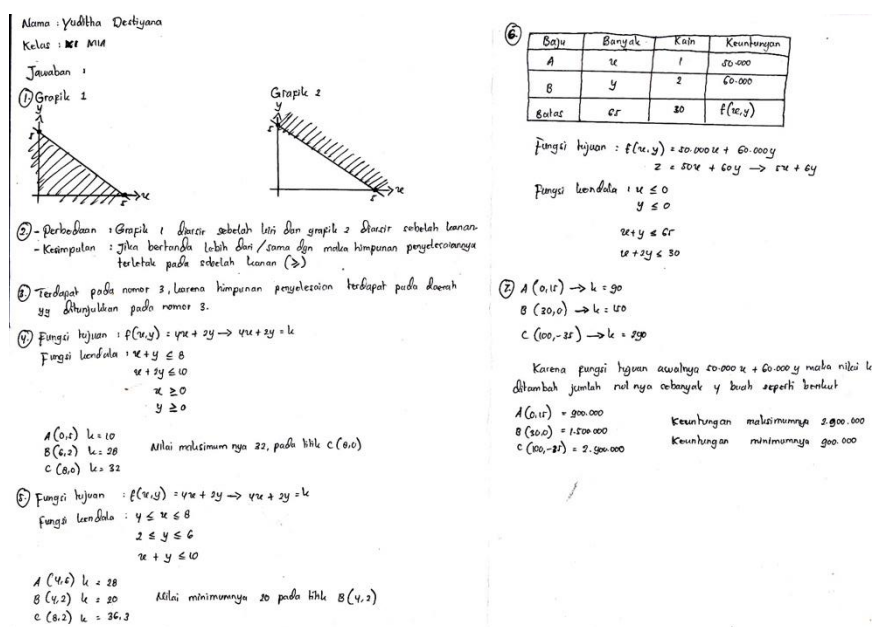 Nama : Yuditha Destiyana
Kelas : XI MIA
Jawaban :
1. Grapik 1
Grapik 2
y
5
5
x
y
5
5
x
2. - Perbedaan : Grapik 1 diarsir sebelah kiri dan grapik 2 diarsir sebelah kanan.
- Kesimpulan : Jika bertanda lebih dari / sama dgn maka himpunan penyelesaiannya
terletak pada sebelah kanan (≥)
3. Terdapat pada nomor 3, karena himpunan penyelesaian terdapat pada daerah
yg ditunjukkan pada nomor 3.
4. Fungsi tujuan : f(x,y) = 4x + 2y → 4x + 2y = k
Fungsi kendala : x + y ≤ 8
x + 2y ≤ 10
x ≥ 0
y ≥ 0
A (0,5) k = 10
B (6,2) k = 28
C (8,0) k = 32
Nilai maksimum nya 32, pada titik C (8,0)
5. Fungsi tujuan : f(x,y) = 4x + 2y → 4x + 2y = k
Fungsi kendala : 4 ≤ x ≤ 8
2 ≤ y ≤ 6
x + y ≤ 10
A (4,6) k = 28
B (4,2) k = 20
C (8,2) k = 36,3
Nilai minimumnya 20 pada titik B (4,2)
6.
Baju Banyak Kain Keuntungan
A x 1 50.000
B y 2 60.000
Batas 65 30 f(x,y)
Fungsi tujuan : f(x,y) = 50.000x + 60.000y
z = 50x + 60y → 5x + 6y
Fungsi kendala : x ≤ 0
y ≤ 0
x + y ≤ 65
x + 2y ≤ 30
7. A (0,15) → k = 90
B (30,0) → k = 150
C (100,-35) → k = 290
Karena fungsi tujuan awalnya 50.000 x + 60.000 y maka nilai k
ditambah jumlah nol nya sebanyak 4 buah seperti berikut
A (0,15) = 900.000
B (30,0) = 1.500.000
C (100,-35) = 2.900.000
Keuntungan maksimumnya 2.900.000
Keuntungan minimumnya 900.000